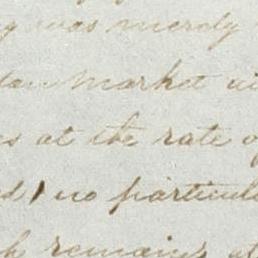 was merely
market
at the rate
no particul
remains at